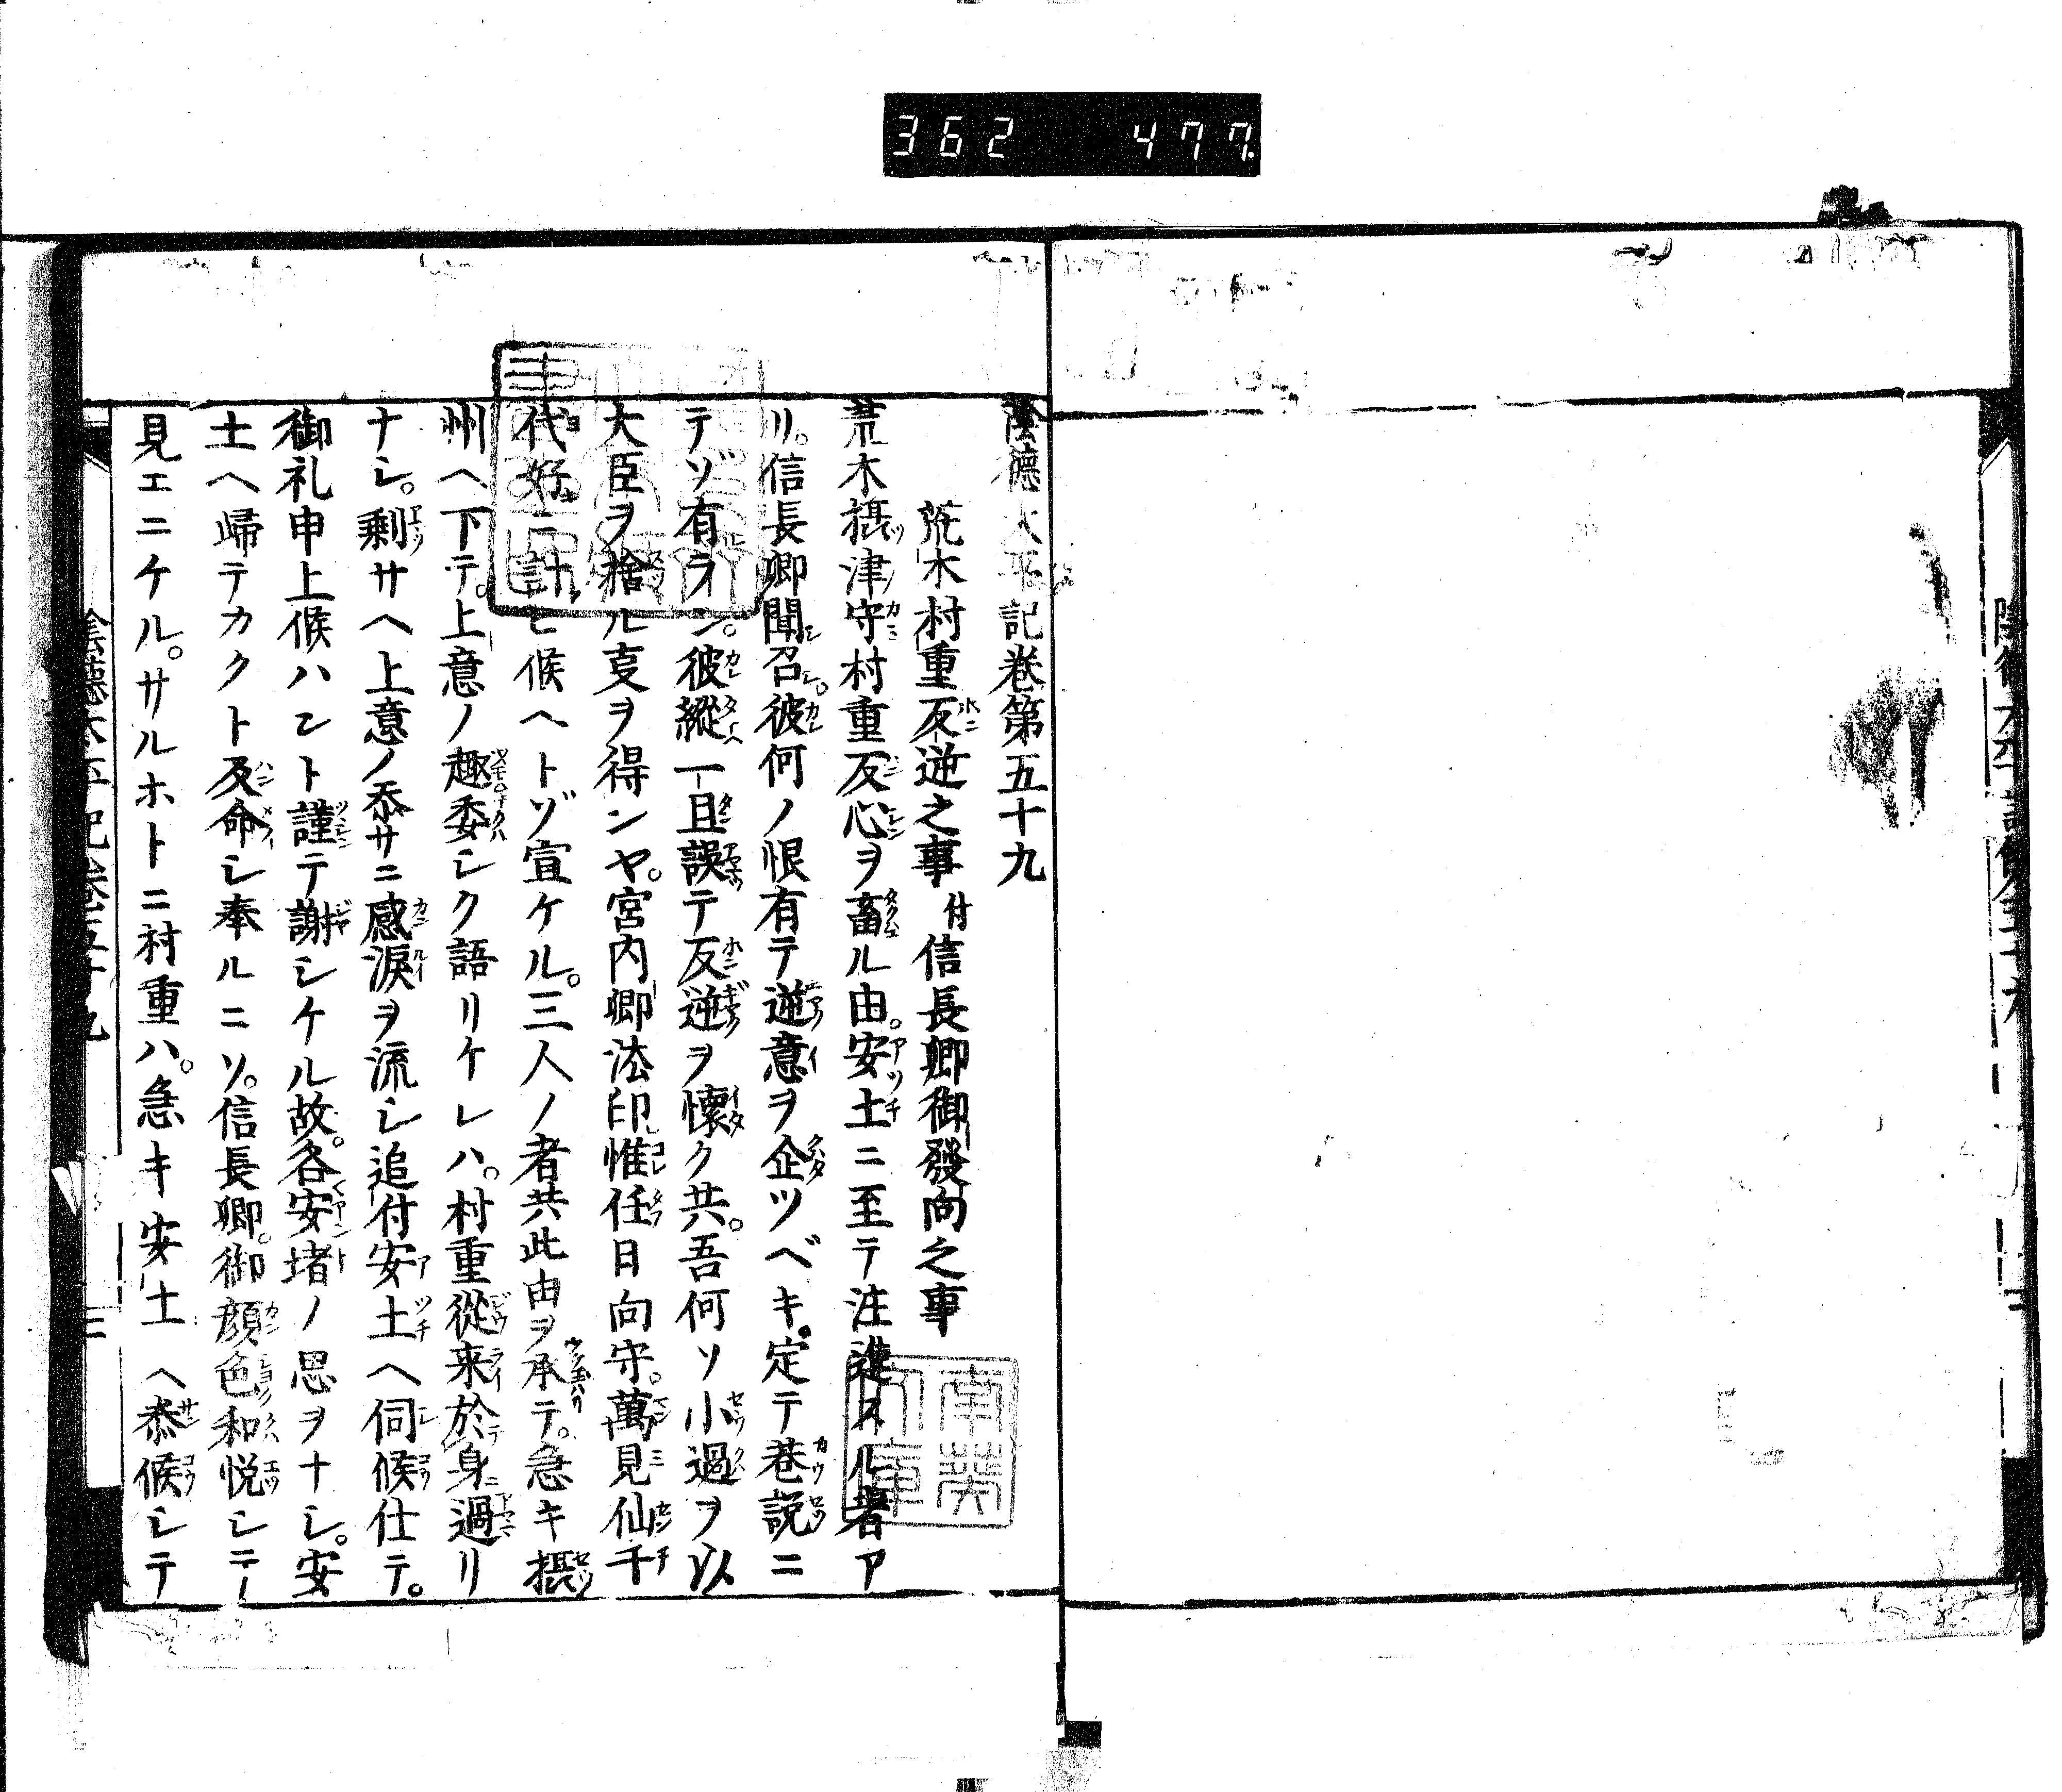 362 477
陰徳太平記巻第五十九
荒木村重反逆之事 付信長卿御發向之事
荒木摂津守村重反心ヲ畜ル由。安土ニ至テ注進スル者ア
リ。信長卿聞召。彼何ノ恨有テ逆意ヲ企ツベキ。定テ巷説ニ
テゾ有ラン。彼縦一旦誤テ反逆ヲ懐ク共。吾何ソ小過ヲ以
大臣ヲ捨ル叓ヲ得ンヤ。宮内卿法印惟任日向守。萬見仙千
代好ニ計ヒ候ヘトゾ宣ケル。三人ノ者共此由ヲ承テ。急キ摂
州ヘ下テ。上意ノ趣委シク語リケレハ。村重從来於身過リ
ナシ。剰サヘ上意ノ忝サニ感涙ヲ流シ追付安土ヘ伺候仕テ。
御礼申上候ハント謹テ謝シケル故。各安堵ノ思ヲナシ。安
土ヘ帰テカクト反命シ奉ルニソ。信長卿。御顔色和悦シテ
見エニケル。サルホトニ村重ハ。急キ安土ヘ参候シテ
陰德太平記巻五十九
南葵
文庫